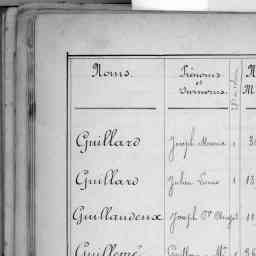 Noms.
Prénoms
et
Surnoms.
N
M
Guillard Joseph Marie 1 3
Guillard Julien Louis 1 13
Guillaudeux Joseph 1 11
Guillemé Guillaume 1 26